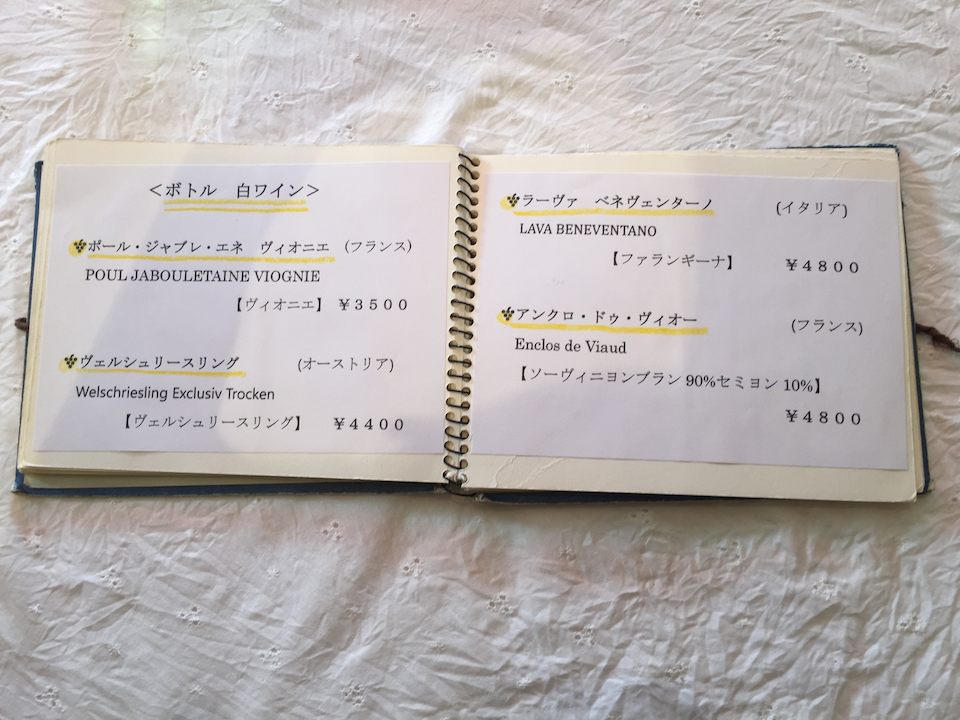 ＜ボトル　白ワイン＞
ポール・ジャブレ・エネ　ヴィオニエ　(フランス)
POUL JABOULETAINE VIOGNIE
【ヴィオニエ】　￥３５００
ヴェルシュリースリング　(オーストリア)
Welschriesling Exclusiv Trocken
【ヴェルシュリースリング】　￥４４００
ラーヴァ　ベネヴェンターノ　(イタリア)
LAVA BENEVENTANO
【ファランギーナ】　￥４８００
アンクロ・ドゥ・ヴィオー　(フランス)
Enclos de Viaud
【ソーヴィニヨンブラン 90%セミヨン 10%】
￥４８００